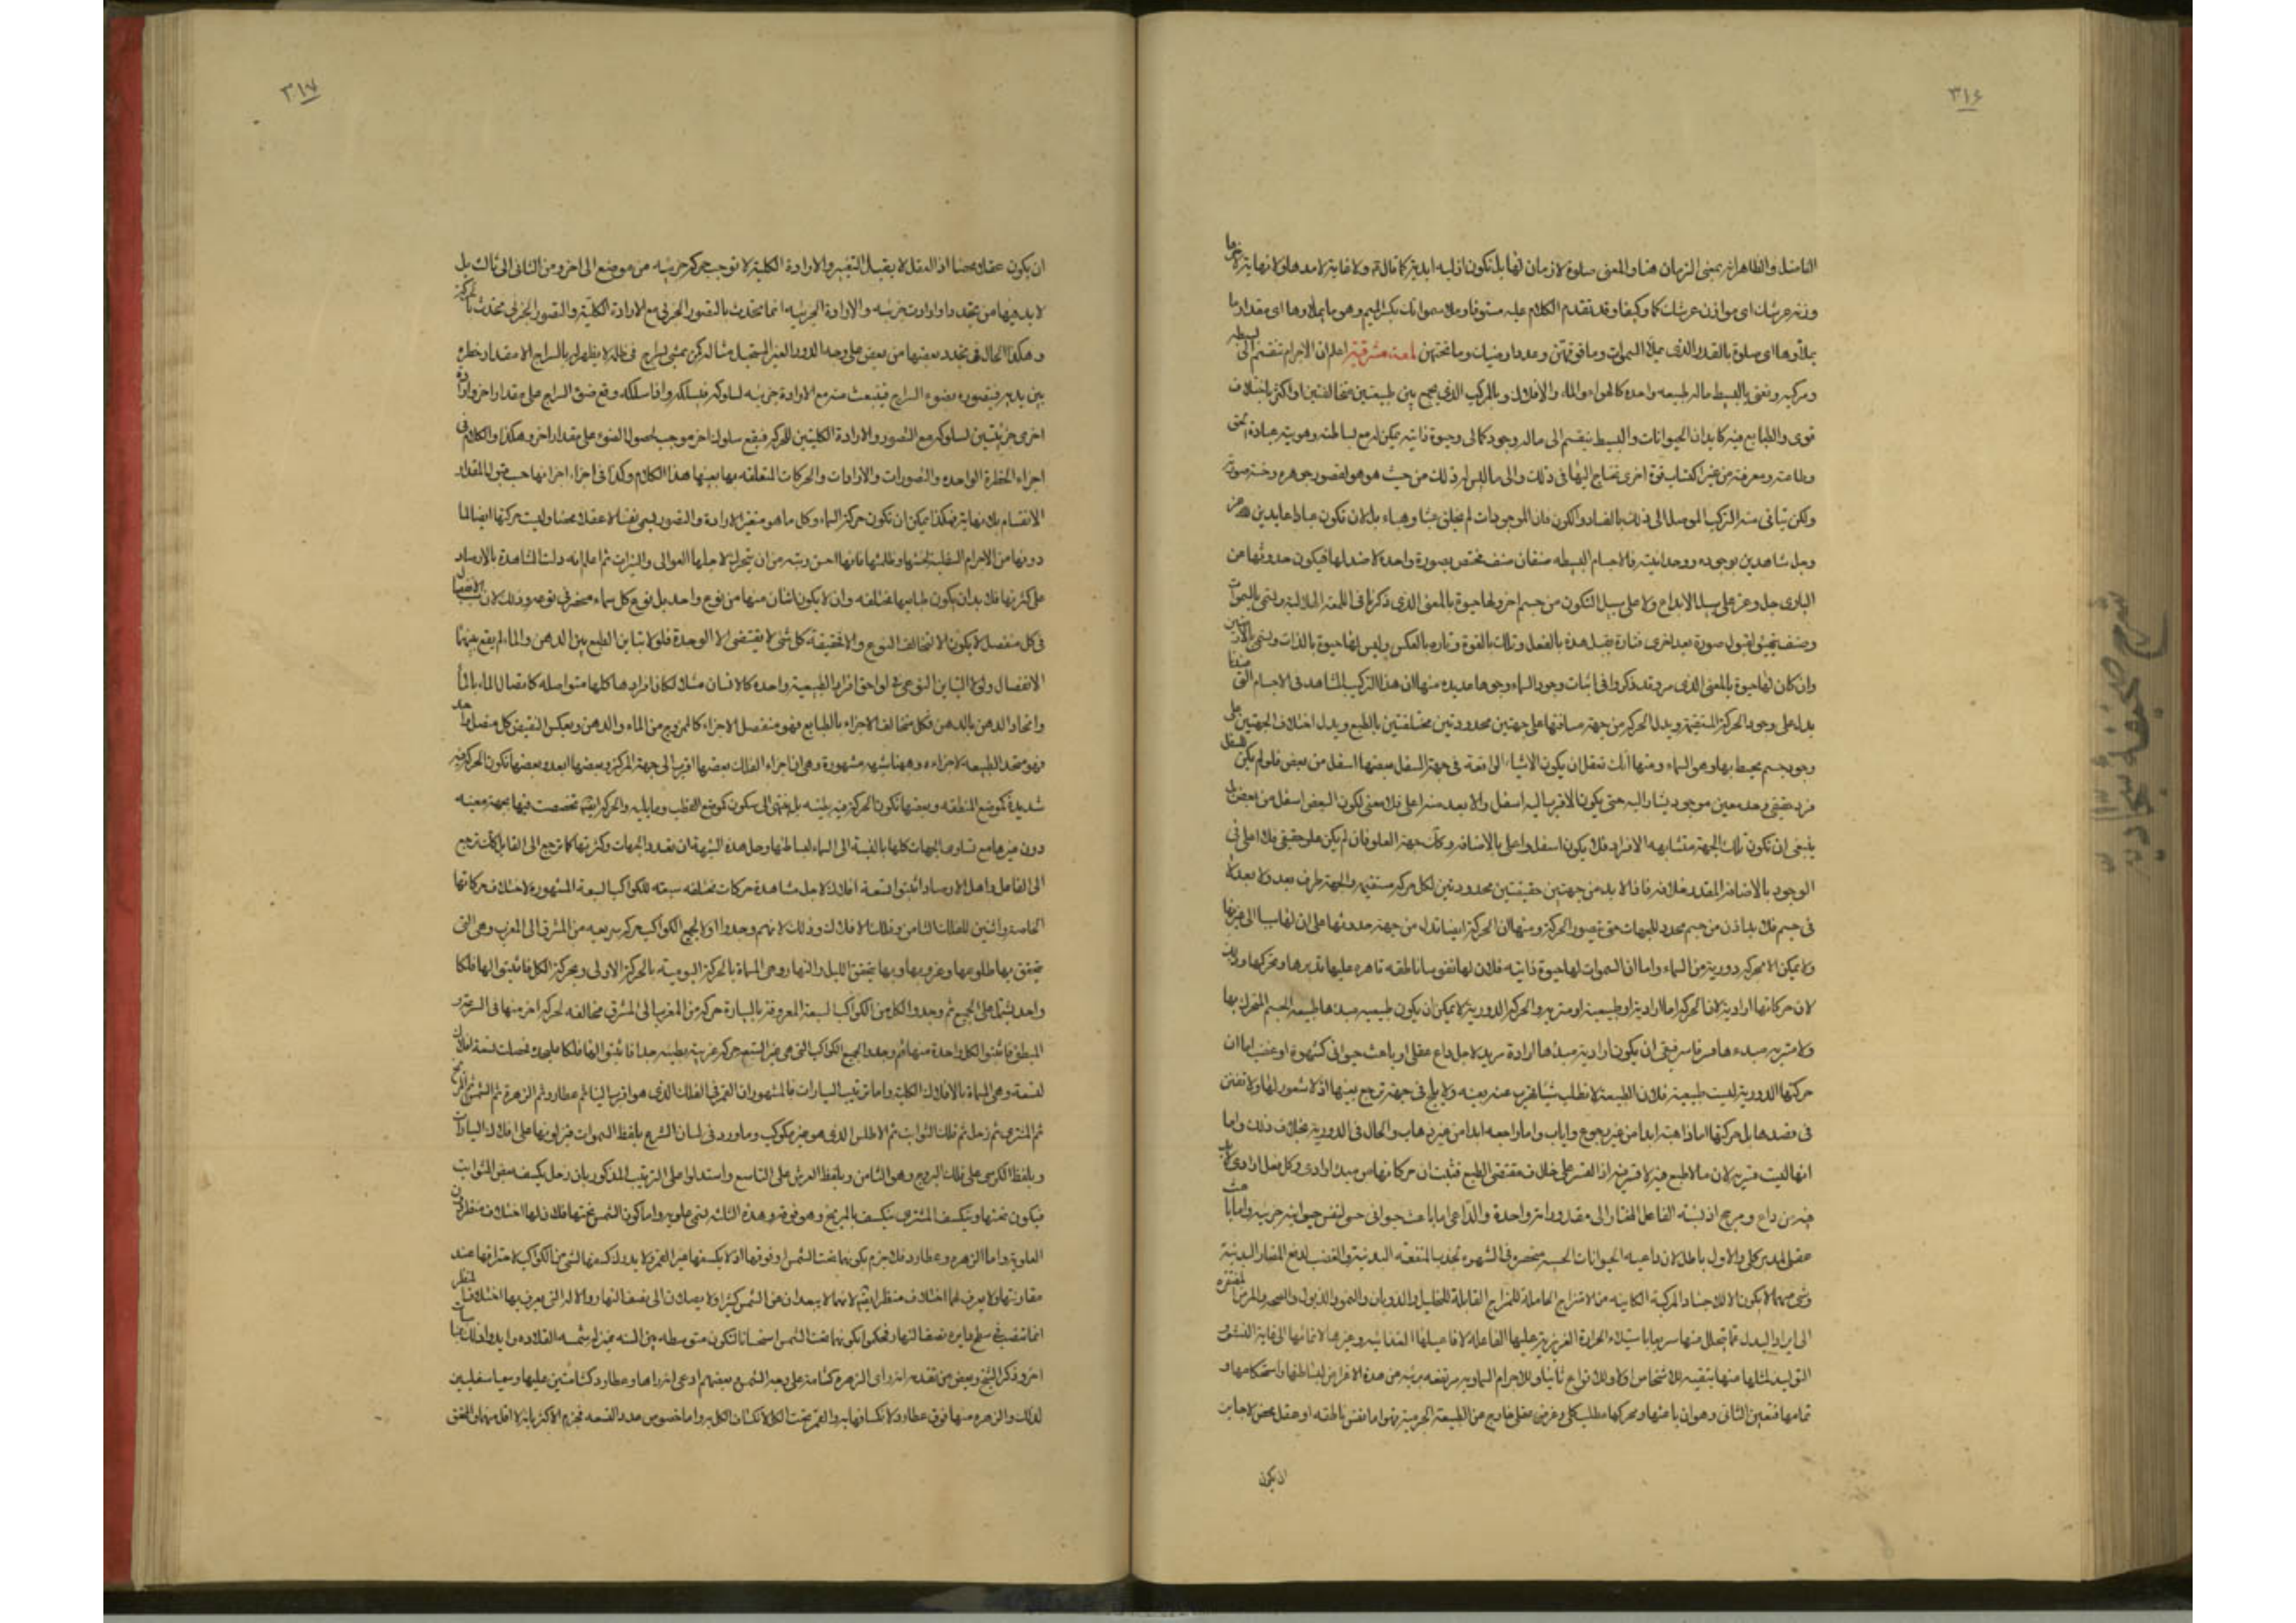 ٣١۶
الفاضل والظاهر انه بمعنى الزمان هنا والمعنى صلوة لا زمان لها بل تكون ازلية ابدية كما قال ولا غاية لامدها ولا نهاية
وزنة عرشك اى موازن عرشك كما وكيفا وقد تقدم الكلام عليه مستوفا وملأ سمواتك بكسر الميم وهو ما يملأوها اى مقدار ما
يملأوها اى صلوة بالقدر الذى يملأ السموات وما فوقهن وعدد ارضيك وما تحتهن لمعة مشرقية اعلم ان الاجرام تنقسم الى بسيطة
ومركبة ونعنى بالبسيط ما له طبيعة واحدة كالهواء والماء والافلاك وبالمركب الذى يجمع بين طبيعتين متخالفتين او اكثر باختلاف
قوى والطبايع فيه كابدان الحيوانات والبسيط ينقسم الى ما له وجود كمالى وحيوة ذاتية يمكن له مع بساطته وهويته عبادة الحق
وطاعته ومعرفته من غير اكتساب قوة اخرى تحتاج اليها فى ذلك والى ما ليس له ذلك من حيث هو هو لقصور جوهره وخسة صورته
ولكن يتأتى منه التركيب الموصل الى ذلك بالفساد والكون فان الموجودات لم تخلق عبثا وهباء بل لان تكون عبادا عابدين لله عز
وجل شاهدين بوجوده ووحدانيته فالاجسام البسيطة صنفان صنف مختص بصورة واحدة لا ضد لها فيكون حدوثها من
البارى جل وعز على سبيل الابداع ولا على سبيل التكون من جسم اخر ولها حيوة بالمعنى الذى ذكرنا فى اللمعة الهلالية وتسمى بالسموات
وصنف تهيئ لقبول صورة بعد اخرى فتارة يقبل هذه بالفعل وتلك بالقوة وتارة بالعكس وليس لها حيوة بالذات وتسمى بالارضين
وان كان لها حيوة بالمعنى الذى مر وقد ذكروا فى اثبات وجود السماء وجوها عديدة منها ان هذا التركيب المشاهد فى الاجسام التى عندنا
يدل على وجود الحركة المستقيمة ويدل الحركة من جهة مسافتها على جهتين محدودتين مختلفتين بالطبع ويدل اختلاف الجهتين على
وجود جسم محيط بها وهو السماء ومنها انك تعقل ان يكون الاشياء الواقعة فى جهة السفل بعضها اسفل من بعض فلو لم يكن للسفل
فرد حقيقى وحد معين موجود يشار اليه حتى يكون الاقرب اليه اسفل والابعد منه اعلى فلا معنى لكون البعض اسفل من بعض بل
ينبغى ان تكون تلك الجهة متشابهة الافراد فلا يكون اسفل واعلى بالاضافة وكذلك جهة العلو فان لم يكن علو حقيقى فلا اعلى فى
الوجود بالاضافة المقدر خلافه فاذا لا بد من جهتين حقيقيتين محدودتين لكل حركة مستقيمة والجهة طرف بعد ولا بعد الا
فى جسم فلا بد اذن من جسم محدد للجهات حتى يتصور الحركة ومنها ان الحركة ايضا تدل من جهة حدوثها على ان لها سببا الى غير نهاية
ولا يمكن الا بحركة دورية من السماء واما ان السموات لها حيوة ذاتية فلان لها نفوسا ناطقة قاهرة عليها تدبرها وتحركها وذلك
لان حركاتها ارادية لان الحركة اما ارادية او طبيعية او قسرية والحركة الدورية لا يمكن ان يكون طبيعية مبدها طبيعة الجسم المتحرك بها
ولا قسرية مبدءها قسر قاسر فبقى ان يكون ارادية مبدها ارادة مريد لاجل داع عقلى او باعث حيوانى كشهوة او غضب اما ان
حركتها الدورية ليست طبيعية فلان الطبيعة لا تطلب شيئا تهرب عنه بعينه ولا يلج فى جهة ترجع بعينها اذ لا شعور لها ولا تفنن
فى قصدها بل حركتها اما ذاهبة ابدا من غير رجوع واياب واما راجعة ابدا من غير ذهاب والحال فى الدورية بخلاف ذلك واما
انها ليست قسرية لان ما لا طبع فيه لا قسر فيه اذ القسر على خلاف مقتضى الطبع فثبت ان حركاتها من مبدء ارادى وكل فعل ارادى لا بد
فيه من داع ومرجح اذ نسبة الفاعل المختار الى مقدوراته واحدة والداعى اما باعث حيوانى حسى لنفس حيوانية جزئية واما باعث
عقلى لمدبر كلى والاول باطل لان داعية الحيوانات الحسية منحصرة فى الشهوة لجذب المنفعة البدنية والغضب لدفع المضار البدنية
وشئ منهما لا يكون الا للاجساد المركبة الكاينة من الامتزاج الحاملة للمزاج القابلة للتحليل والذوبان والنمو والذبول والصحة والمرض المفتقرة
الى ايراد البدل عما يتحلل منها سريعا باستيلاء الحرارة الغريزية عليها الفاعلة لافاعيلها الغذائية وغيرها لانمائها الى غاية النشو و
التوليد لمثلها منها بتبقية للاشخاص اولا وللانواع ثانيا وللاجرام السماوية مرتفعة بريئة من هذه الاغراض لبساطتها واستحكامها و
تمامها فتعين الثانى وهو ان باعثها ومحركها مطلب كلى وغرض عقلى خارج من الطبيعة الجرمية فهو اما نفس ناطقة او عقل محض لا جايز
ان يكون
٣١٧
ان يكون عقلا محضا اذ العقل لا يقبل التغير والارادة الكلية لا توجب حركة جزئية من موضع الى اخر ومن الثانى الى ثالث بل
لا بد فيها من تجدد ارادات جزئية والارادة الجزئية انما تحدث بالتصور الجزئى مع الارادة الكلية والتصور الجزئى يحدث بالحركة
وهكذا الحال فى تجدد بعضها من بعض على وجه الدور الغير المستحيل مثاله كمن يمشى بسراج فى ظلمة لا يظهر له بالسراج الا مقدار خطوة
بين يديه فيتصوره بضوء السراج فينبعث منه مع الارادة جزئية لسلوكه فيسلكه واذا سلكه وقع ضوء السراج على مقدار اخر وارادة
اخرى جزئيتين لسلوكه مع التصور والارادة الكليتين للحركة فيقع سلوك اخر موجب لحصول الضوء على مقدار اخر وهكذا والكلام فى
اجزاء الخطوة الواحدة والتصورات والارادات والحركات المتعلقة بها بعينها هذا الكلام وكذا فى اجزاء اجزائها حسب قبول المقدار
الانقسام بلا نهاية فهكذا يمكن ان تكون حركة السماء وكل ما هو متغير الارادة والتصور يسمى نفسا لا عقلا محضا وليست حركتها ايضا لما
دونها من الاجرام السفلية لخستها وقلتها فانها احسن رتبة من ان يتحرك لاجلها العوالى والنيرات ثم اعلم انه دلت المشاهدة بالارصاد
على كثرتها فلا بد ان يكون طبايعها مختلفة وان لا يكون اثنان منها من نوع واحد بل نوع كل سماء منحصر فى نوعه وذلك لان سبب الانفصال
فى كل منفصل لا يكون الا لتخالف النوع والا فحقيقة كل شئ لا يقتضى الا الوحدة فلولا تباين الطبع بين الدهن والماء لم يقع بينهما
الانفصال ولولا التباين النوعى فى لواحق افراد الطبيعة واحدة كالانسان مثلا لكان افرادها كلها متواصلة كاتصال الماء بالماء
واتحاد الدهن بالدهن فكل متخالف الاجزاء بالطبايع فهو منفصل الاجزاء كالممزوج من الماء والدهن وبعكس النقيض كل متصل واحد
فهو متحد الطبيعة لاجزاءه وههنا شبهة مشهورة وهى ان اجزاء الفلك بعضها اقرب الى جهة المركز وبعضها ابعد وبعضها تكون الحركة فيه
شديدة كموضع المنطقة وبعضها تكون الحركة فيه بطيئة بل ينتهى الى سكون كموضع القطب وما يليه والحركة ايضا تخصصت فيها بجهة معينة
دون غيرها مع تساوى الجهات كلها بالنسبة الى السماء لبساطتها وحل هذه الشبهة ان تعدد الجهات وكثرتها كما ترجع الى القابل كذلك ترجع
الى الفاعل واهل الارصاد اثبتوا تسعة افلاك لاجل مشاهدة حركات مختلفة سبعة للكواكب السبعة المشهورة لاختلاف حركاتها
الخاصة واثنين للفلك الثامن وفلك الافلاك وذلك لانهم وجدوا اولا لجميع الكواكب حركة سريعة من المشرق الى المغرب وهى التى
يتحقق بها طلوعها وغروبها وبها يتحقق الليل والنهار وهى المسماة بالحركة اليومية بالحركة الاولى وبحركة الكل فاثبتوا لها فلكا
واحدا يشتمل على الجميع ثم وجدوا لكل من الكواكب السبعة المعروفة بالسيارة حركة من المغرب الى المشرق مخالفة لحركة اخر منها فى السرعة و
البطؤ فاثبتوا لكل واحدة منها ثم وجدوا لجميع الكواكب التى هى غير السبع حركة غربية بطيئة جدا فاثبتوا لها فلكا عليحدة فحصلت تسعة افلاك
لتسعة وهى المسماة بالافلاك الكلية واما ترتيب السيارات فالمشهور ان القمر فى الفلك الذى هو اقرب الينا ثم عطارد ثم الزهرة ثم الشمس ثم المريخ
ثم المشترى ثم زحل ثم فلك الثوابت ثم الاطلس الذى هو غير مكوكب وما ورد فى لسان الشرع بلفظ السموات فيؤلونها على افلاك السيارات
وبلفظ الكرسى على فلك البروج وهو الثامن وبلفظ العرش على التاسع واستدلوا على الترتيب المذكور بان زحل يكسف بعض الثوابت
فيكون تحتها وينكسف المشترى ينكسف بالمريخ وهو فوقه وهذه الثلثة تسمى علوية واما كون الشمس تحتها فلان لها اختلاف منظر دون
العلوية واما الزهرة وعطارد فلا جزم بكونهما تحت الشمس او فوقها اذ لا يكسفها غير القمر ولا يدرك كسفها لشئ من الكواكب لاحتراقها عند
مقارنتها ولا يعرف لهما اختلاف منظر ايضا لانهما لا يبعدان عن الشمس كثيرا ولا يصلان الى نصف النهار والالة التى يعرف بها اختلاف المنظر
انما تنصب فى سطح دايرة نصف النهار فحكموا بكونهما تحت الشمس استحسانا لتكون متوسطة بين الستة بمنزلة شمسة القلادة وايدوا ذلك بمناسبات
اخر وذكر الشيخ وبعض من تقدمه انه راى الزهرة كشامة على وجه الشمس وبعضهم ادعى انه راها وعطارد كشامتين عليها وسميا سفليين
لذلك والزهرة منها فوق عطارد لانكسافها به والقمر تحت الكل لانكساف الكل به واما خصوص عدد التسعة فجزم الاكثر بانه لا اقل منها والمحقق
شرح صحيفة سجادية